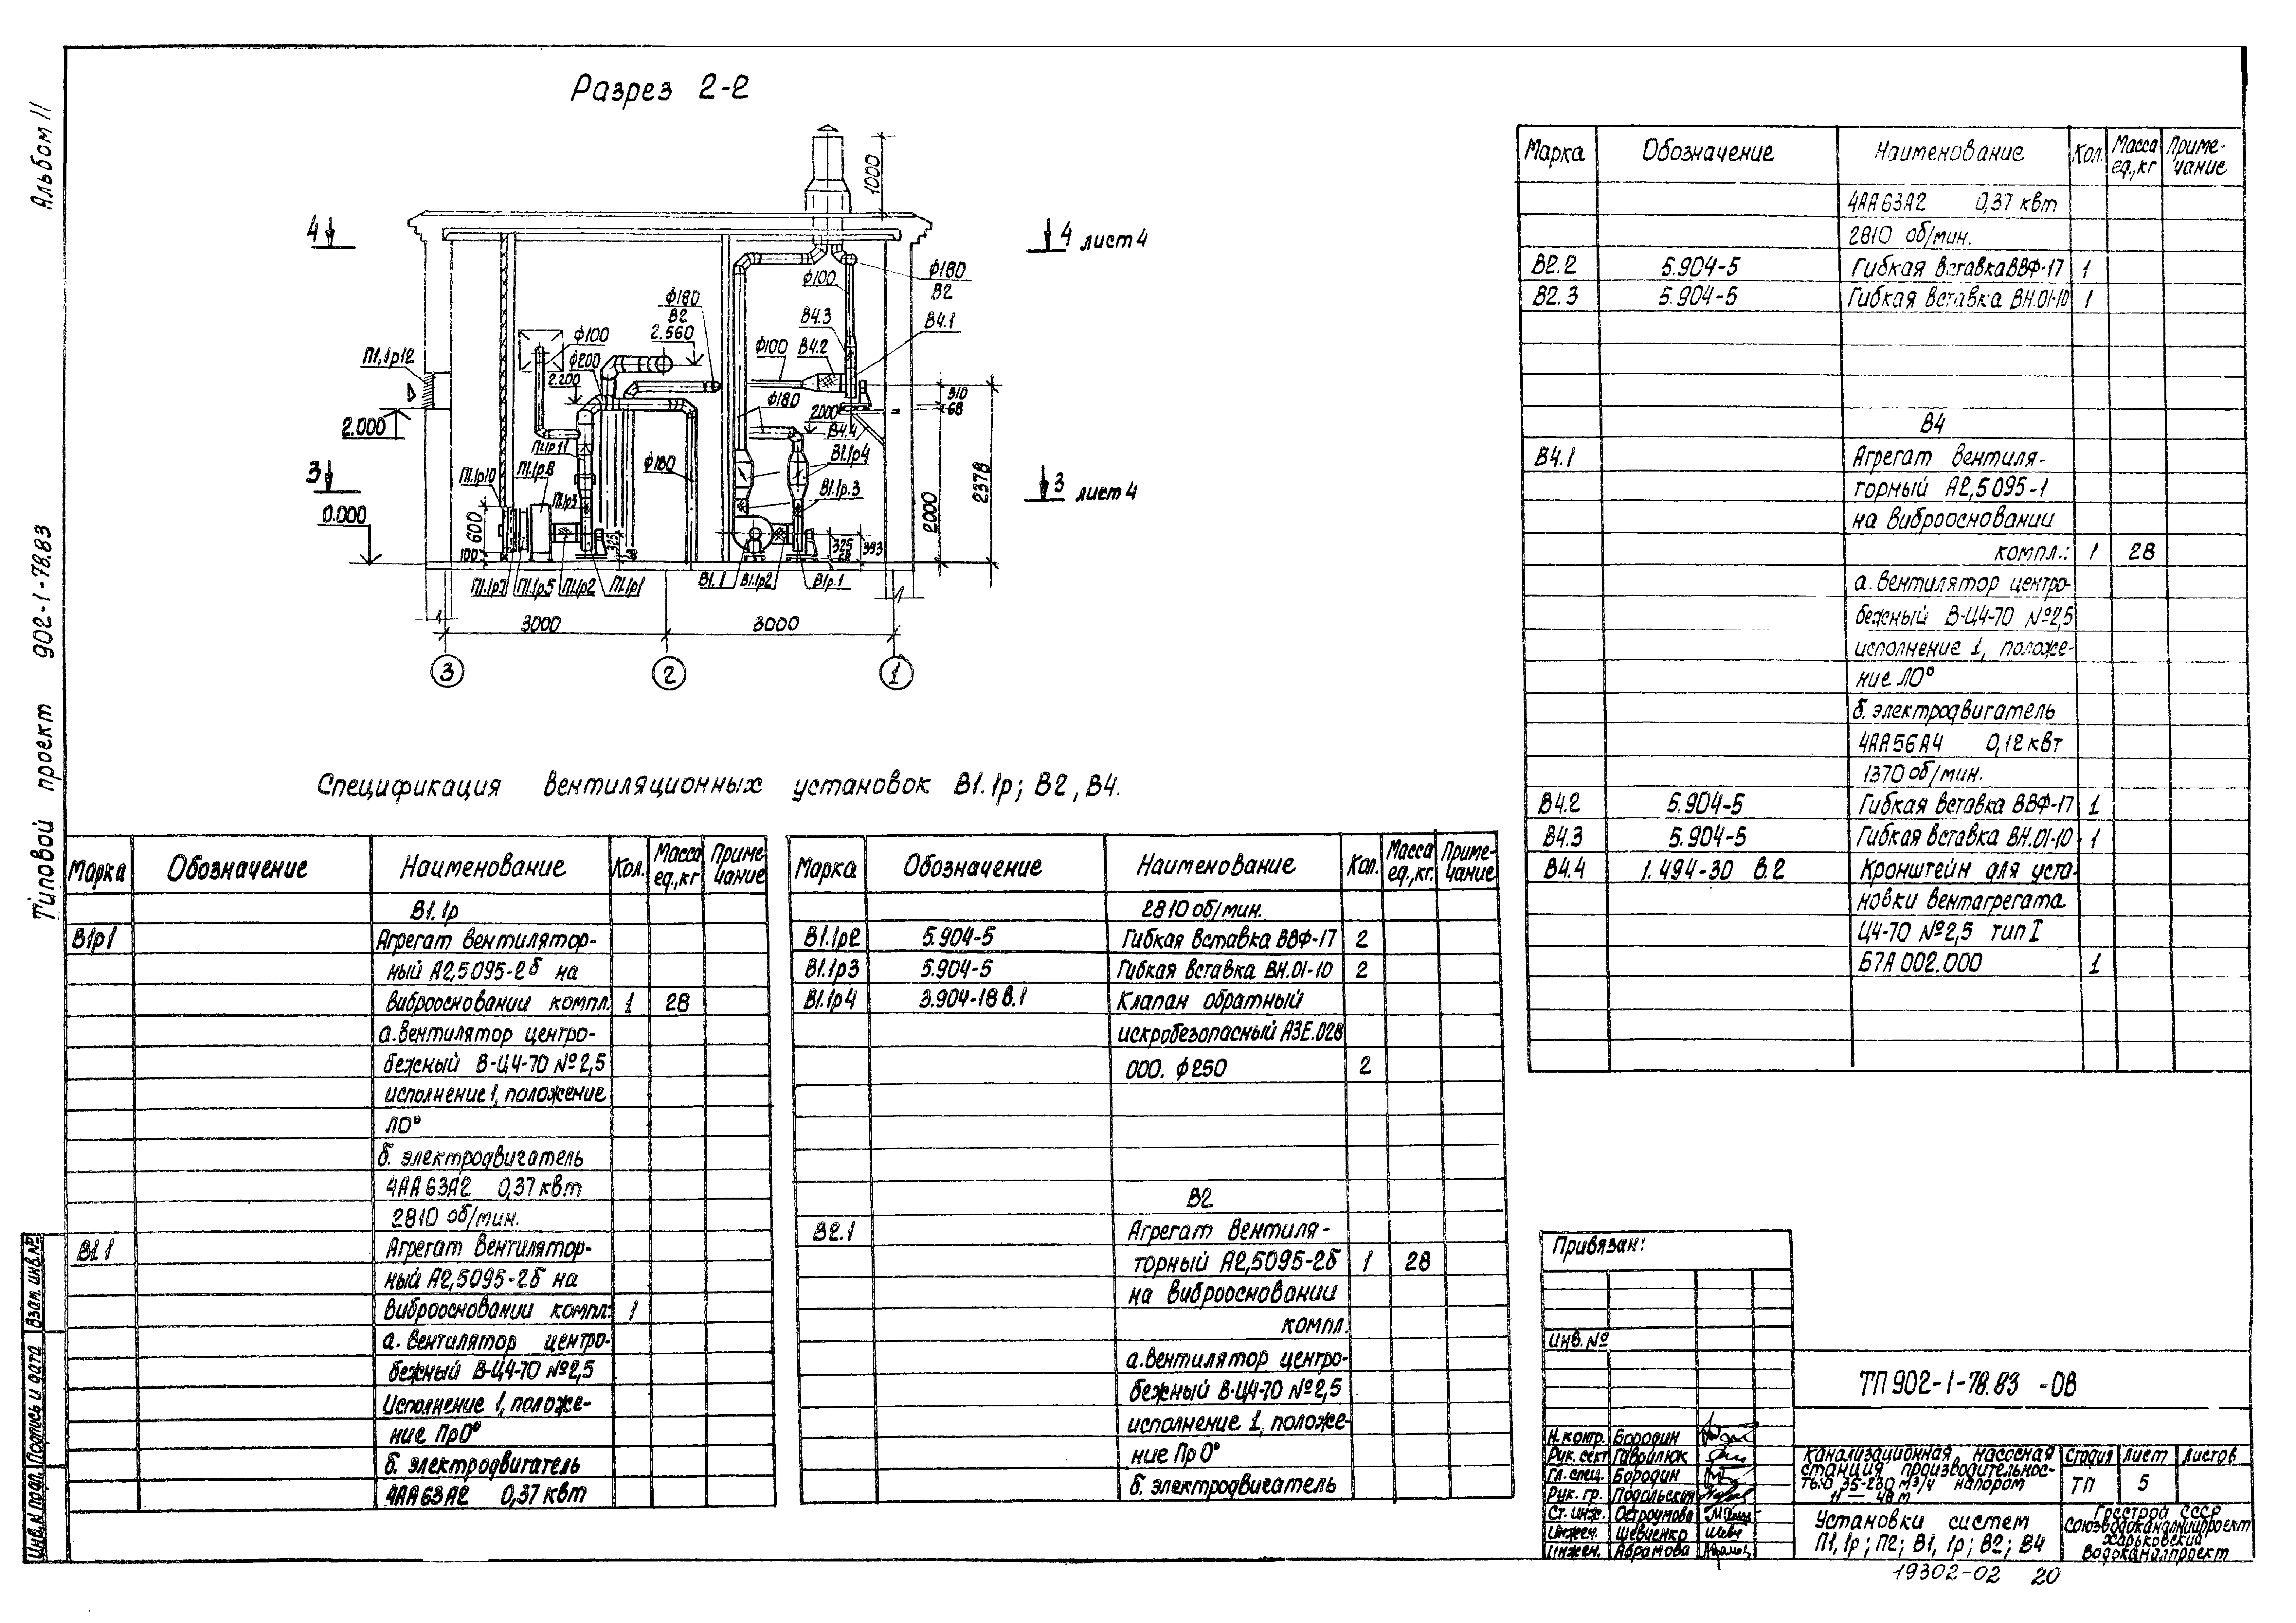 Альбом II
Типовой проект 902-1-78.83
Разрез 2-2
1000
4
4 лист 4
ф180
В2
ф100
В4.3
В4.1
ф180
В2
2.560
ф100
В4.2
ф100
ф200
2.200
П1,1р12
2.000
310
68
ф180
2000
В4.4
П1.1р11
В1.1р4
П1.1р10
П1.1р8
ф180
2378
3
3 лист 4
В1.1р.3
0.000
600
100
2000
325
68
325
68
393
П1.1р5
П1.1р2
П1.1р1
В1.1
В1.1р2
В1р.1
3000
3000
3
2
1
Спецификация вентиляционных установок В1.1р; В2, В4.
Марка Обозначение Наименование Кол. Масса ед.,кг Приме-чание
В1.1р
В1р1 Агрегат вентилятор-
ный А2,5095-2б на
виброосновании компл. 1 28
а. вентилятор центро-
бежный В-Ц4-70 №2,5
исполнение 1, положение
Л0°
б. электродвигатель
4АА63А2 0,37 квт
2810 об/мин.
В1.1 Агрегат вентилятор-
ный А2,5095-2б на
виброосновании компл: 1
а. вентилятор центро-
бежный В-Ц4-70 №2,5
Исполнение 1, положе-
ние Пр0°
б. электродвигатель
4АА63А2 0,37 квт
Марка Обозначение Наименование Кол. Масса ед.,кг. Приме-чание
2810 об/мин.
В1.1р2 5.904-5 Гибкая вставка ВВФ-17 2
В1.1р3 5.904-5 Гибкая вставка ВН.01-10 2
В1.1р4 3.904-18 в.1 Клапан обратный
искробезопасный АЗЕ.028
000. ф250 2
В2
В2.1 Агрегат вентиля-
торный А2,5095-2б 1 28
на виброосновании
компл.
а. вентилятор центро-
бежный В-Ц4-70 №2,5
исполнение 1, положе-
ние Пр0°
б. электродвигатель
Марка Обозначение Наименование Кол. Масса ед.,кг Приме-чание
4АА63А2 0,37 квт
2810 об/мин.
В2.2 5.904-5 Гибкая вставка ВВФ-17 1
В2.3 5.904-5 Гибкая вставка ВН.01-10 1
В4
В4.1 Агрегат вентиля-
торный А2,5095-1
на виброосновании
компл.: 1 28
а. вентилятор центро-
бежный В-Ц4-70 №2,5
исполнение 1, положе-
ние Л0°
б. электродвигатель
4АА56А4 0,12 квт
1370 об/мин.
В4.2 5.904-5 Гибкая вставка ВВФ-17 1
В4.3 5.904-5 Гибкая вставка ВН.01-10 1
В4.4 1.494-30 В.2 Кронштейн для уста-
новки вентагрегата
Ц4-70 №2,5 тип I
Б7А 002.000 1
Привязан:
Инв.№
ТП 902-1-78.83 -ОВ
Н.контр. Бородин
Рук.сект Гаврилюк
Гл.спец. Бородин
Рук.гр. Подольская
Ст.инж. Остроумова
Инжен. Шевченко
Инжен. Абрамова
Канализационная насосная
станция производительнос-
тью 35-280 м³/ч напором
11 — 48 м
Стадия Лист Листов
ТП 5
Установки систем
П1,1р; П2; В1,1р; В2; В4
Госстрой СССР
Союзводоканалниипроект
Харьковский
Водоканалпроект
19302-02 20
Инв.№подл. Подпись и дата Взам. инв.№